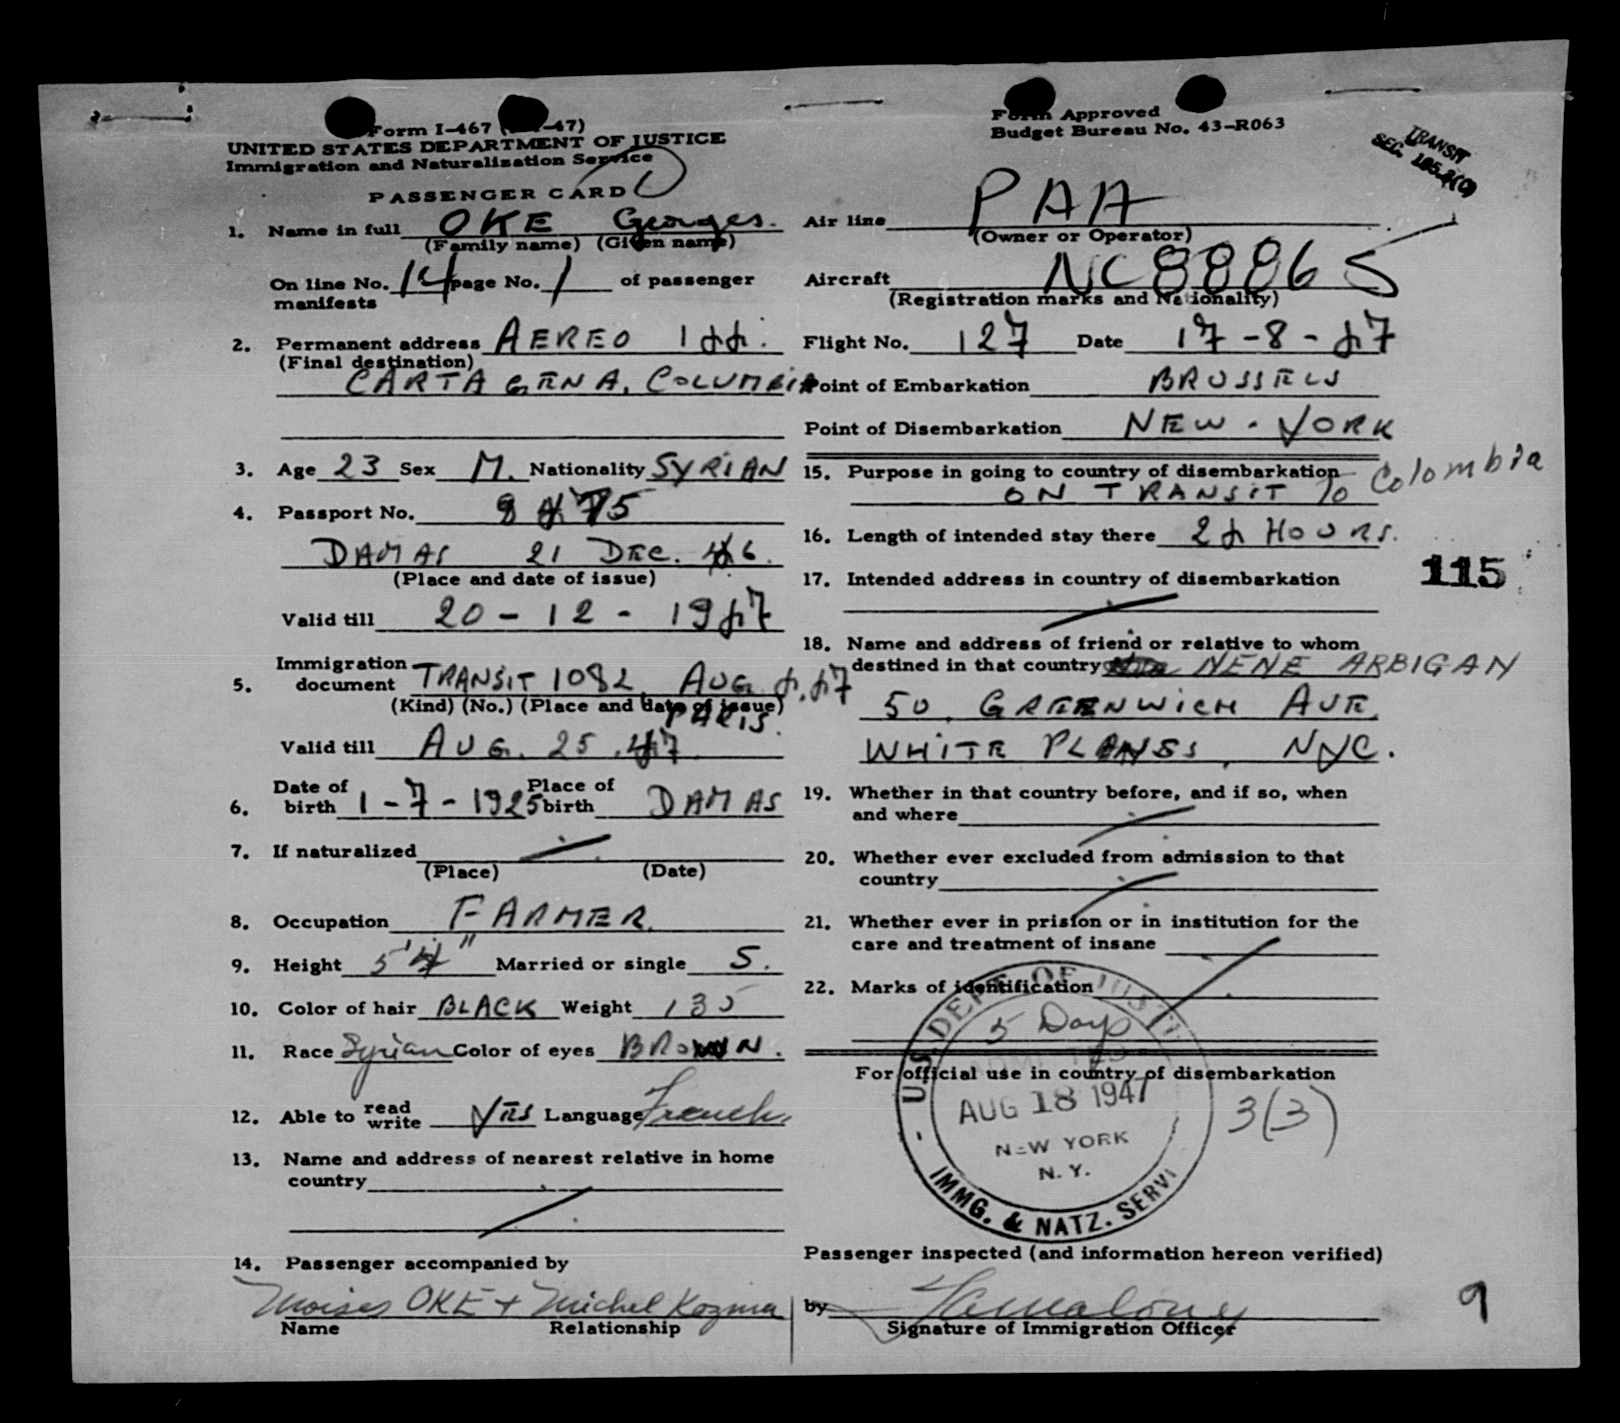 Form I-467 ( -47)
UNITED STATES DEPARTMENT OF JUSTICE
Immigration and Naturalization Service
PASSENGER CARD
Form Approved
Budget Bureau No. 43-R063
TRANSIT
SEC.
1. Name in full OKE Georges.
(Family name) (Given name)
On line No. 14 page No. 1 of passenger
manifests
2. Permanent address AEREO 144.
(Final destination)
CARTAGENA, COLUMBIA
3. Age 23 Sex M. Nationality SYRIAN
4. Passport No. 8475
DAMAS 21 DEC. 46.
(Place and date of issue)
Valid till 20-12-1947
5. Immigration document TRANSIT 1082, AUG 4. 47
(Kind) (No.) (Place and date of issue)
PARIS.
Valid till AUG. 25. 47
6. Date of birth 1-7-1925 Place of birth DAMAS
7. If naturalized /
(Place) (Date)
8. Occupation FARMER.
9. Height 5'4" Married or single S.
10. Color of hair BLACK Weight 135
11. Race Syrian Color of eyes BROWN.
12. Able to read write YES Language French
13. Name and address of nearest relative in home
country
/
14. Passenger accompanied by
Moises OKE + Michel Kozma
Name Relationship
Air line PAA
(Owner or Operator)
Aircraft NC88865
(Registration marks and Nationality)
Flight No. 127 Date 17-8-47
Point of Embarkation BRUSSELS
Point of Disembarkation NEW-YORK
15. Purpose in going to country of disembarkation
ON TRANSIT To Colombia
16. Length of intended stay there 24 HOURS.
17. Intended address in country of disembarkation
/
115
18. Name and address of friend or relative to whom
destined in that country NENE ARBIGAN
50, GREENWICH AVE.
WHITE PLAINS, NYC.
19. Whether in that country before, and if so, when
and where /
20. Whether ever excluded from admission to that
country /
21. Whether ever in prison or in institution for the
care and treatment of insane
22. Marks of identification /
For official use in country of disembarkation
U.S. DEPT. OF JUSTICE
5 Days
ADMITTED
AUG 18 1947
NEW YORK
N.Y.
IMMG. & NATZ. SERV.
3(3)
Passenger inspected (and information hereon verified)
by
Signature of Immigration Officer
9